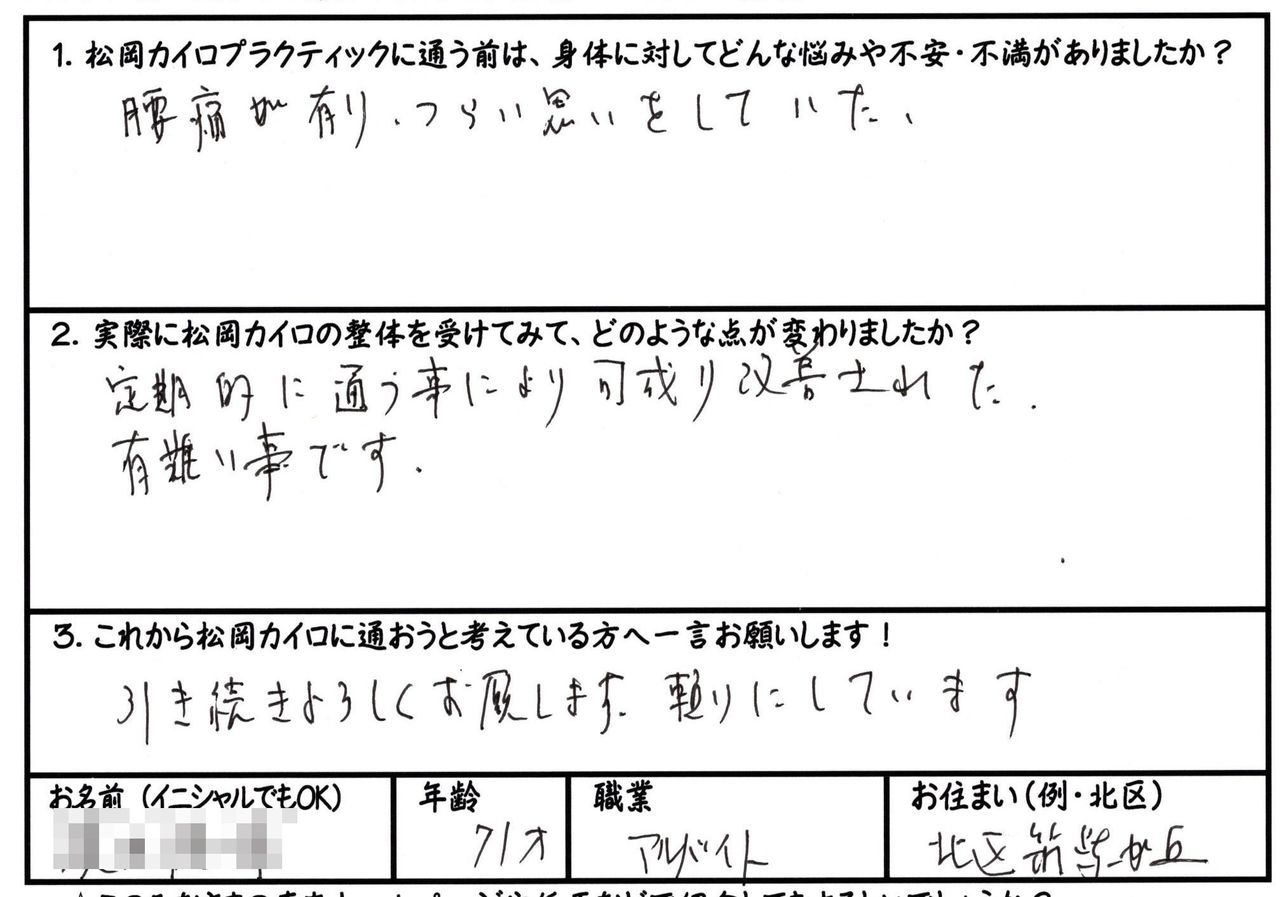 1. 松岡カイロプラクティックに通う前は、身体に対してどんな悩みや不安・不満がありましたか？
腰痛が有り、つらい思いをしていた、
2. 実際に松岡カイロの整体を受けてみて、どのような点が変わりましたか？
定期的に通う事により可成り改善された.
有難い事です.
3. これから松岡カイロに通おうと考えている方へ一言お願いします！
引き続きよろしくお願します. 頼りにしています
お名前（イニシャルでもOK） 年齢 職業 お住まい（例・北区）
71才 アルバイト 北区筑紫が丘